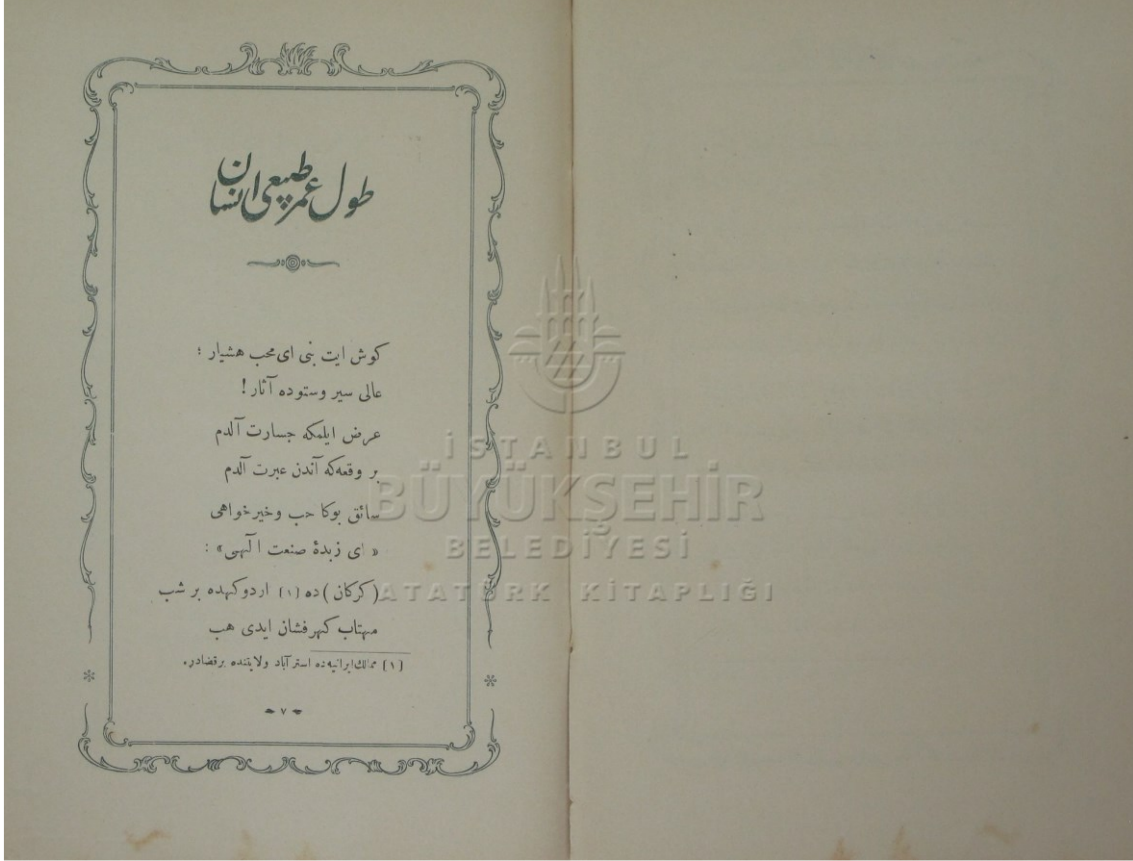 طول عمر طبیعی انسان
كوش ایت بنی ای محب هشیار ؛
عالی سیر وستوده آثار !
عرض ایلمكه جسارت آلدم
بر وقعه‌كه آندن عبرت آلدم
سائق بوكا حب وخیرخواهی
« ای زبدۀ صنعت الٓهی » :
(كركان) ده [١] اردوكهده بر شب
مهتاب كهرفشان ایدی هب
[١] ممالك ایرانیه‌ده استرآباد ولایتنده برقضادر.
٧
İSTANBUL
BÜYÜKŞEHİR
BELEDİYESİ
ATATÜRK KİTAPLIĞI